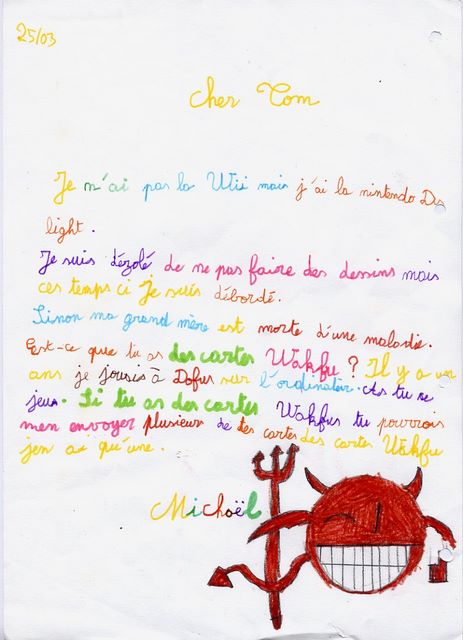 25/03
cher Tom
Je n'ai pas la Wii mais j'ai la nintendo Ds
light.
Je suis dézolé de ne pas faire des dessins mais
ces temps ci Je suis débordé.
Sinon ma grand mère est morte d'une maladie.
Est-ce que tu as des cartes Wakfu ? Il y a un
ans je jousis à Dofus sur l'ordinater. As tu ce
jeu. Si tu as des cartes Wakfus tu pourrois
men envoyer plusieur de tes cartes des cartes Wakfu
jen ai qu'une.
Michaël